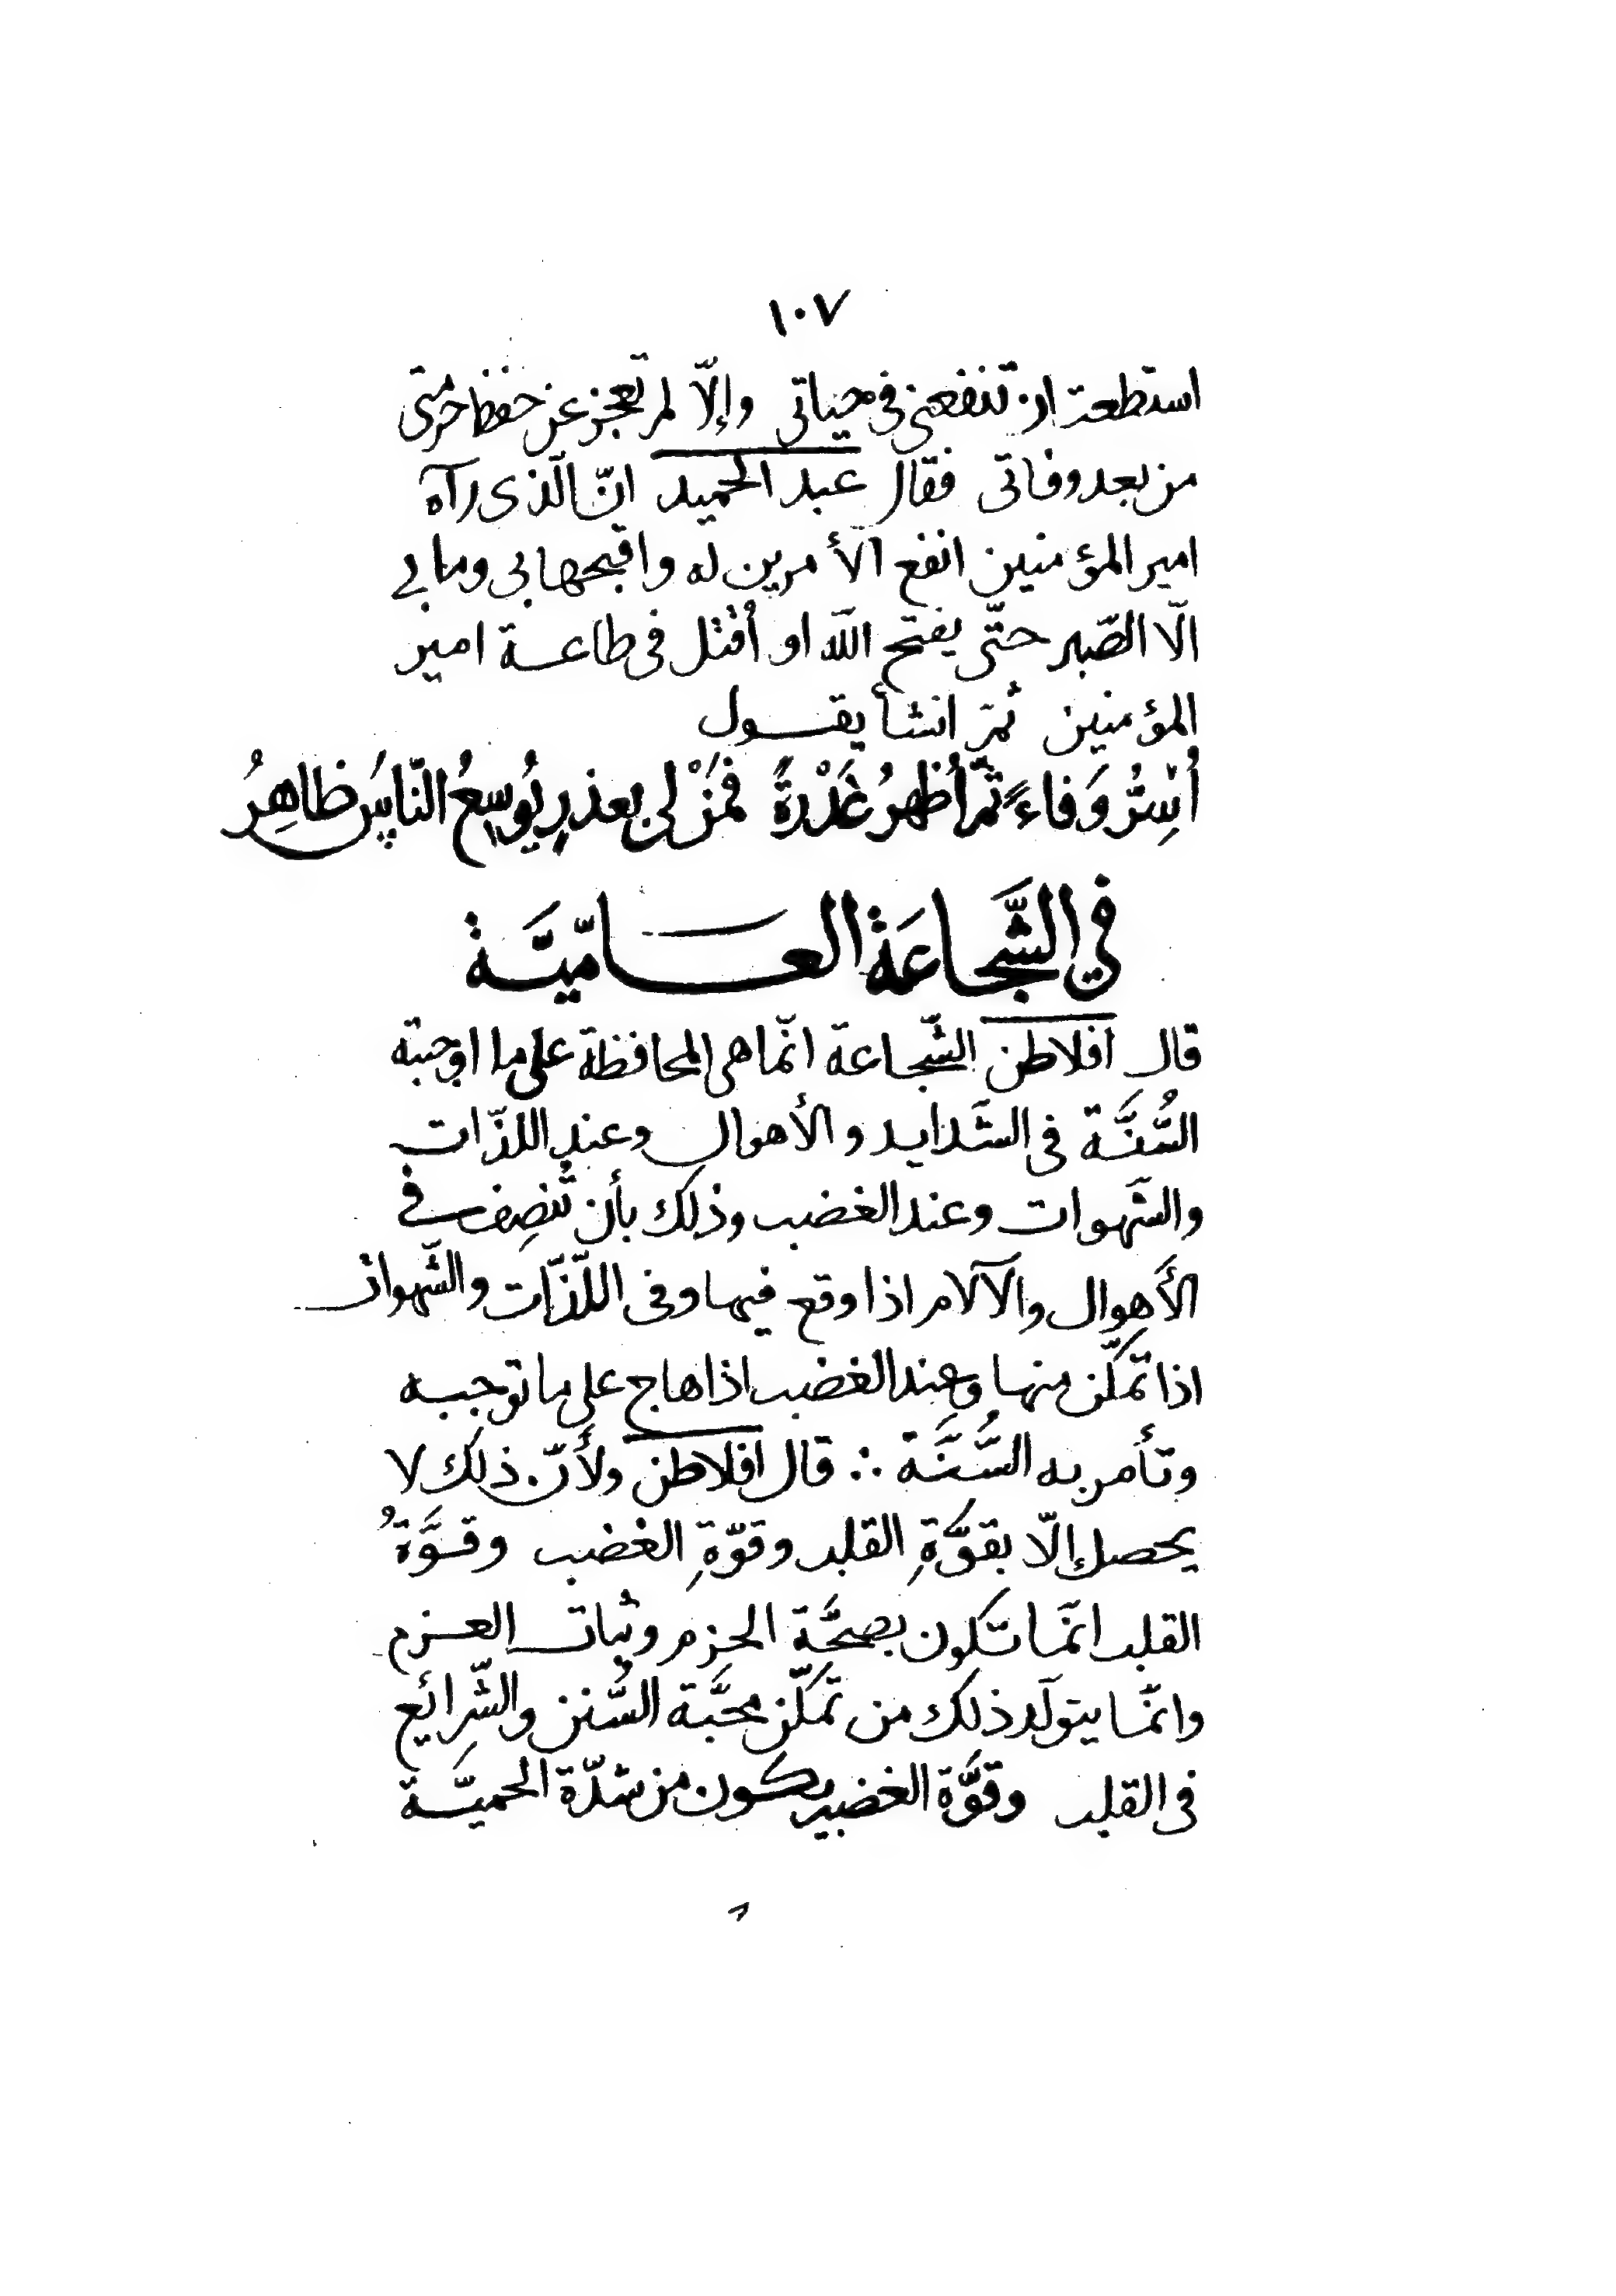 ١٠٧
استطعت ان تنفعني في حياتي وإلّا لم تعجز عن حفظ حرمتي
من بعد وفاتي فقال عبد الحميد انّ الّذى رآه
امير المؤمنين انفع الأمرين له واقبحهما بى وما بي
الّا الصّبر حتّى يفتح اللّه او أُقتل فى طاعة امير
المؤمنين ثمّ انشأ يقول
أُسِرُّ وَفاءً ثمّ أُظهرُ غَدْرةً فمَنْ لى بعذرٍ يُوسِعُ النّاسَ ظاهِرُ
في الشَّجاعَة العَامّيَّة
قال افلاطن الشّجاعة انّما هى المحافظة على ما اوجبته
السُّنَّة فى الشدايد والأهوال وعند اللذّات
والشهوات وعند الغضب وذلك بأن تُنصِف في
الأهوال والآلام اذا وقع فيها وفى اللّذّات والشّهوات
اذا تمكّن منها وعند الغضب اذا هاج على ما توجبه
وتأمر به السُّنَّة ∴ قال افلاطن ولأنّ ذلك لا
يحصل إلّا بقوَّةِ القلب وقوّةِ الغضب وقوَّةُ
القلب انمّا تكون بصحَّة الحزم وثبات العزم
وانمّا يتولّد ذلك من تمكّن محبَّة السُّنن والشّرائع
فى القلب وقوَّة الغضب يكون من شدّة الحميّة